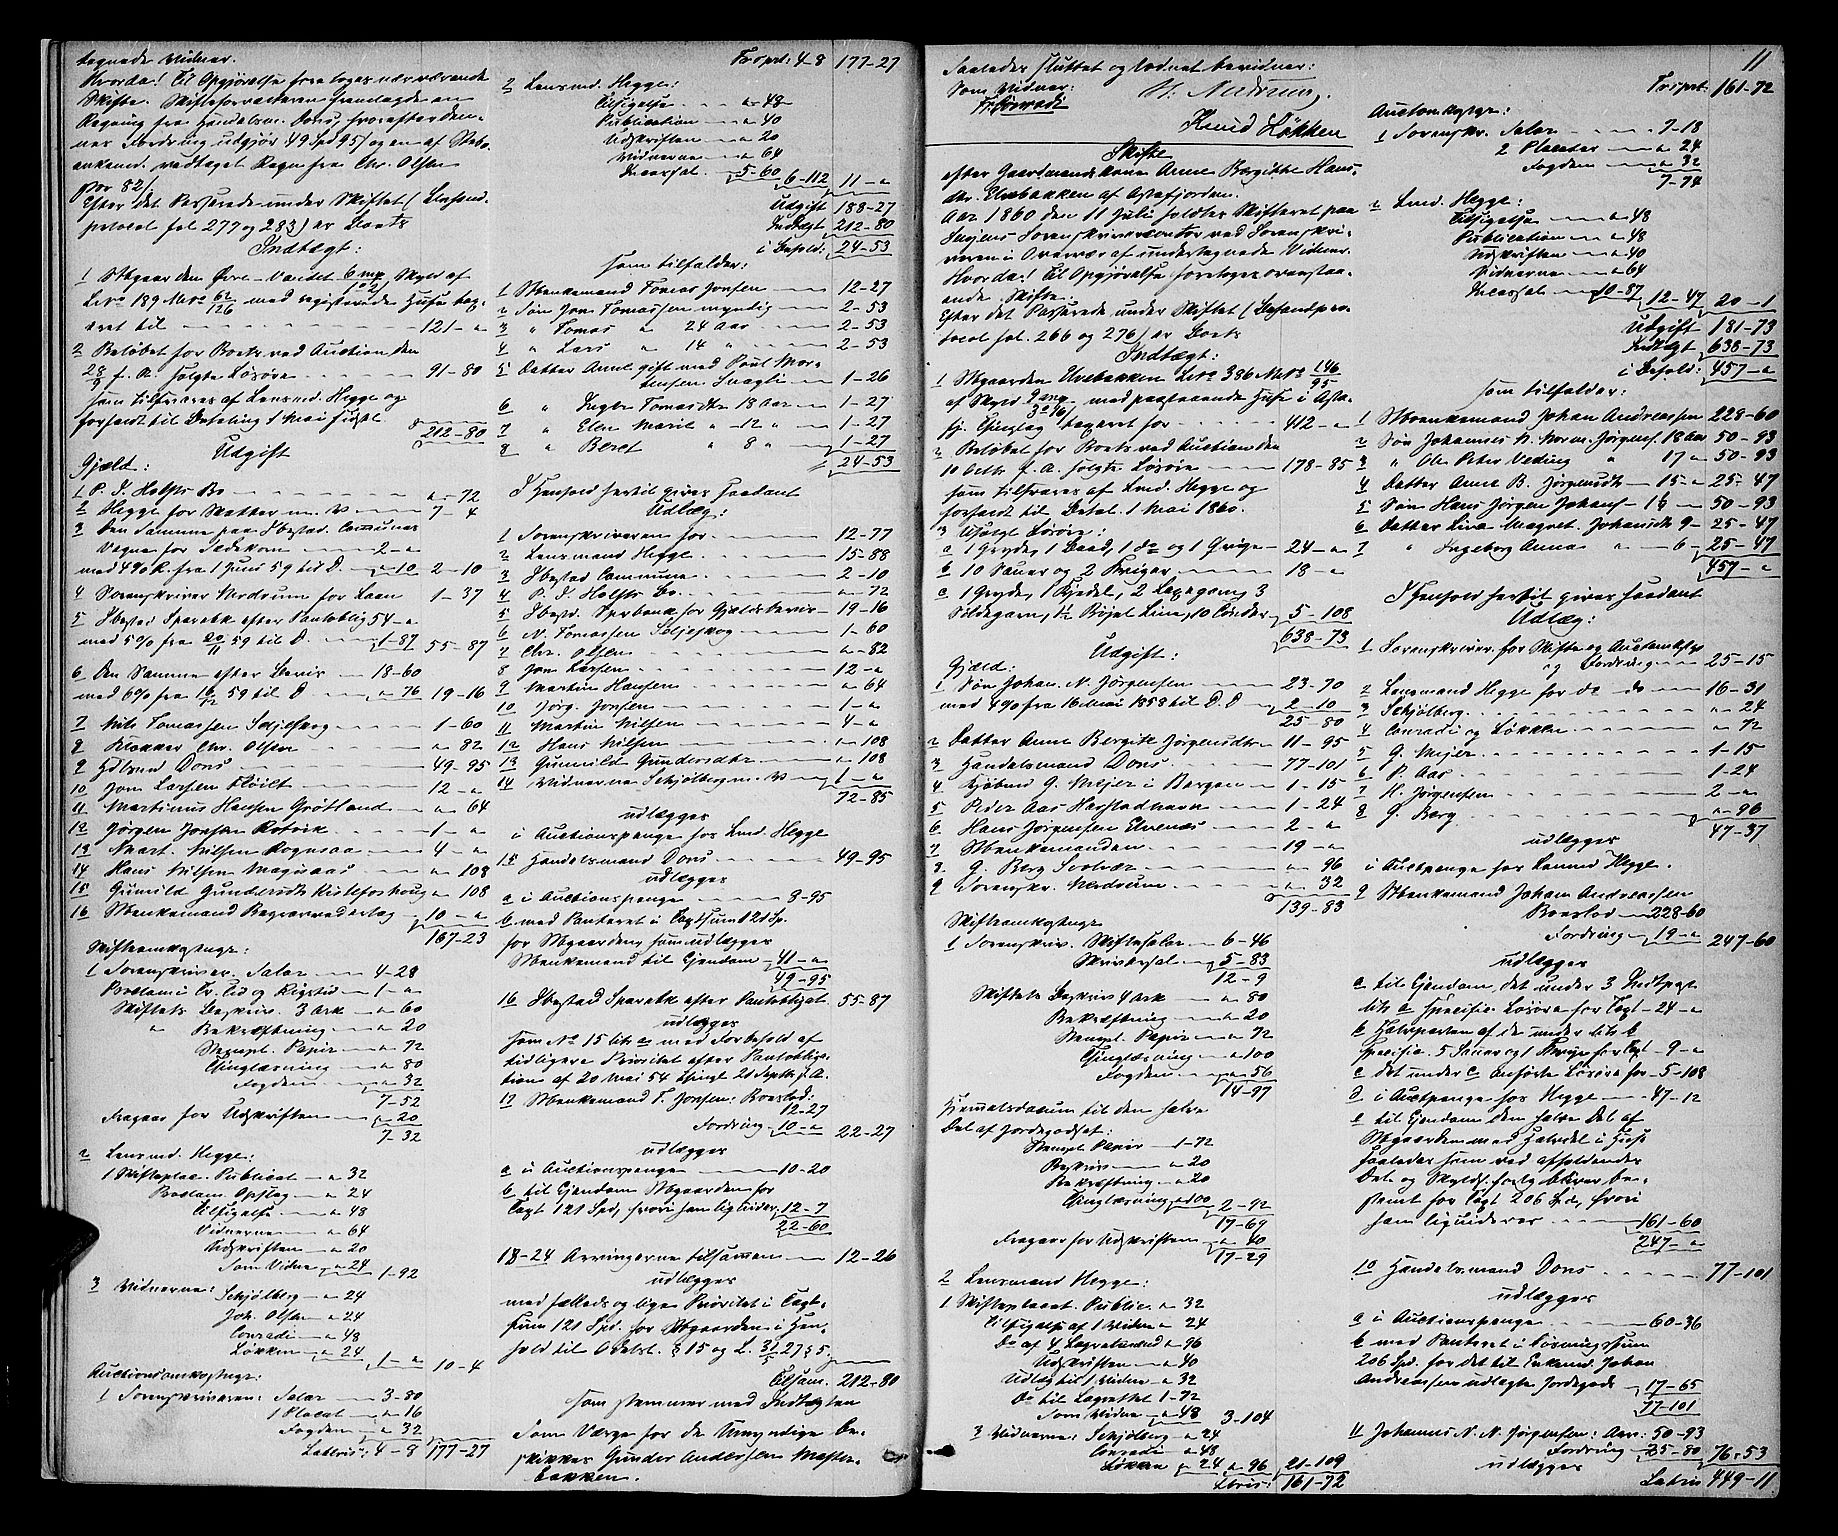 tegnede Vidner.
Hvorda! Til Opgjørelse foretoges nærværende
Skifte. Skifteforvalteren fremlagde en
Regning fra Handelsm. Dons, hvorefter den-
nes Fordring udgjør 49 Spd 95/ og en af Stervb.
enkemd. vedtaget Regn. fra Chr. Olsen
stor 82/.
Efter det Passerede under Skiftet (Behand.
protocol fol 277 og 283) er Boets
Indtægt:
1 Stgaarden Øvre Vandet 6 mp Skyld af
Lbno 189 Mno 62/126 med registrerede Huse tax-
eret til 121-"
2 Beløbet for Boets ved Auction den
28/9 f. A. solgte Løsøre 91-80
som tilsvares af Lensmd. Hegge og
forfaldt til Betaling 1 Mai sidst
212-80
Udgift
Gjæld:
1 P. I. Holsts Bo "-72
2 Hegge for Skatter m. v. 7-4
3 Den Samme paa Ibestad Communes
Vegne for Sædekorn 2-"
med 4% R. fra 1 Juni 59 til D. "-10 2-10
4 Sorenskriver Nerdrum for Laan 1-37
5 Ibestad Sparebk efter Pantoblig 54-"
med 5% fra 20/11 59 til D. 1-87 55-87
6 Den Samme efter Bevis 18-60
med 6% fra 16/12 59 til D "-76 19-16
7 Nils Tomassen Seljeskog 1-60
8 Klokker Chr. Olsen "-82
9 Hdlsmd Dons 49-95
10 Jon Larsen Fløilt 12-"
11 Martinus Hansen Grøtland "-64
12 Jørgen Jonsen Rotvik 1-"
13 Mart. Nilsen Rognsaa 4-"
14 Hans Nilsen Magnsaas "-108
15 Gunild Gundersdtr Kirkeforhoug "-108
16 Stenkemand Begravvedertag 10-"
167-23
Skifteomkostnge:
1 Sorenskriver. Salar 4-28
Proclam i Tr. Tid og Rigstid 1-"
Skiftets Beskriv. 3 Ark "-60
" Bekræftning "-20
Stempl. Papir "-72
Thinglæsning "-80
Fogden "-32
7-52
Fragaar for Udskriften "-20
7-32
2 Lensmd. Hegge:
1 Skifteplac. Publicat "-32
Proclam. Opslag "-24
Tilsigelse "-48
Vidnerne "-64
Udskriften "-20
Som Vidne "-24 1-92
3 Vidnerne: Schjølberg "-24
Joh. Olsen "-24
Conradi "-48
Løkken "-24 1-" 10-4
Auctionsomkostnge:
1 Sorenskriveren: Salar 3-80
1 Placat "-16
Fogden "-32
Lateris: 4-8 177-27
Trspt: 4-8 177-27
2 Lensmd. Hegge:
Tilsigelse "-48
Publication "-40
Udskriften "-20
Vidnerne "-64
Incassal. 5-60 6-112 11-"
Udgift 188-27
Indtægt 212-80
i Behold: 24-53
som tilfalder:
1 Stenkemand Tomas Jonsen 12-27
2 Søn Jon Tomassen myndig 2-53
3 " Tomas " 24 Aar 2-53
4 " Lars " 14 " 2-53
5 Datter Anne gift med Poul Mor-
tensen 1-26
6 " Inger Tomasdtr 18 Aar 1-27
7 " Elen Marie " 12 " 1-27
8 " Beret " 8 " 1-27
24-53
I Henhold hertil gives saadant
Udlæg:
1 Sorenskriveren for 12-77
2 Lensmand Hegge 15-88
3 Ibestad Commune 2-10
4 P. I. Holsts Bo "-72
5 Ibestd. Sparbank for Gjælds Bevis 19-16
6 N. Tomassen Seljeskog 1-60
7 Chr. Olsen "-82
8 Jon Larsen 12-"
9 Martin Hansen "-64
10 Jørg. Jonsen 1-"
11 Martin Nilsen 4-"
12 Hans Nilsen "-108
13 Gunnild Gundersdtr "-108
14 Vidnerne Schjølberg m. v. 1-"
72-85
udlægges
i Auctionspenge hos Lmd. Hegge
15 Handelsmand Dons 49-95
udlægges
a i Auctionspenge 8-95
b med Panteret i Taxtsum 121 Sp.
for Stgaarden som udlægges
Stenkemand til Eiendom 41-"
49-95
16 Ibestad Sparebk efter Pantobligat 55-87
udlægges
som No 15 litr a med Forbehold af
tidligere Prioritet efter Pantobliga-
tion af 20 Mai 54 thingl. 21 Septb. f. A.
17 Stenkemand T. Jonsen: Boeslod:
12-27
Fordring 10-" 22-27
udlægges
a i Auctionspenge 10-20
b til Eiendom Stgaarden for
Taxt 121 Spd, hvori han ligviderer 12-7
22-60
18-24 Arvingerne tilsammen 12-26
udlægges
med fælleds og lige Prioritet i Taxt-
sum 121 Spd. for Stgaarden i Hen-
hold til Arvelov. § 15 og L. 31/5 27 § 5.
Tilsam. 212-80
som stemmer med Indtægten
Som Værge for de Umyndige be-
skikkes Gunder Andersen Mester-
bakken.
11
Saaledes sluttet og Lodnet bevidner:
Som Vidner: N. Nerdrum.
Fr. Conradi
Knud Løkken
Skifte
efter Gaardmandskone Anne Birgitte Hans-
dtr. Elvebakken af Astafjorden.
Aar 1860 den 11 Juli holdtes Skifteret paa
Senjens Sorenskrivercontor ved Sorenskri-
veren i Overvær af undertegnede Vidner.
Hvorda! Til Opgjørelse foretoges ovenstaa-
ende Skifte.
Efter det Passerede under Skiftet (Behandlpro-
tocol fol. 266 og 276) er Boets
Indtægt:
1 Stgaarden Elvebakken Lbno 386 Mno 146/95
af Skyld med paastaaende Huse i Asta-
fj. Thinglag taxeret for 412-"
2 Beløbet for Boets ved Auction den
10 Octb. f. A. solgte Løsøre 178-85
som tilsvares af Lmd. Hegge og
forfaldt til Betal. 1 Mai 1860.
3 Usolgt Løsøre:
a 1 Gryde, 1 Baad, 1 do og 1 Qvige 24-"
b 10 Sauer og 2 Qviger 18-"
c 1 Gryde, 1 Kjedel, 2 Laxegarn, 3
Sildegarn, 1½ Bøiel Line, 10 5-108
638-73
Udgift:
Gjæld:
1 Søn Johan. N. Jørgensen 23-70
med 4% fra 16 Mai 1858 til D. D 2-10
25-80
2 Datter Anne Bergite Jørgensdtr 11-95
3 Handelsmand Dons 77-101
4 Kjøbmd G. Meier i Bergen 1-15
5 Peder Aas Harstadhavn 1-24
6 Hans Jørgensen Elvenæs 2-"
7 Stenkemanden 19-"
8 G. Berg Svolvær "-96
9 Sorenskr. Nerdrum "-32
139-83
Skifteomkostnge
1 Sorenskriv. Skiftesalar 6-46
Skriversal 5-83
12-9
Skiftets Beskriv 4 Ark "-80
Bekræftning "-20
Stempl. Papir "-72
Thinglæsning "-100
Fogden "-56
14-97
Hjemelsdocum til den halve
Del af Jordegodset:
Stempl. Papir 1-72
Beskriv "-20
Bekræftning "-20
Thinglæsning "-100 2-92
17-69
Fragaar for Udskriften "-40
17-29
2 Lensmand Hegge:
1 Skifteplacat. Public. "-32
Tilsigelse af 1 Vidne "-24
Do af 4 Lagrettemænd "-96
Udskriften "-40
Udlæg til 1 Vidne "-32
Do til Lagrettet 1-72
Som Vidne "-48 3-104
3 Vidnerne: Schjølberg "-24
Conradi "-48
Løkken "-24 "-96 21-109
Ltris: 161-72
Trspt 161-72
Auctomkostnge:
1 Sorenskr. Salar 7-18
2 Placater "-24
Fogden "-32
7-74
2 Lmd. Hegge:
Tilsigelse "-48
Publication "-48
Udskriften "-40
Vidnerne "-64
Incassal 10-87 12-47 20-1
Udgift 181-73
Indtægt 638-73
i Behold: 457-"
som tilfalder:
1 Stenkemand Johan Andreassen 228-60
2 Søn Johannes N. Norm. Jørgens. 18 Aar 50-93
3 " Ole Peter Veding " 17 " 50-93
4 Datter Anne B. Jørgensdtr 15 " 25-47
5 Søn Hans Jørgen Johans. 50-93
6 Datter Lina Magret. Johansdtr 9 25-47
7 " Ingeborg Anna " 6 25-47
457-"
I Henhold hertil gives saadant
Udlæg:
1 Sorenskriver. for Skifte og Auctomkostn
og Fordring 25-15
2 Lensmand Hegge for do do 16-31
3 Schjølberg "-24
4 Conradi og Løkken "-72
5 G. Meier 1-15
6 P. Aas 1-24
7 H. Jørgensen 2-"
8 G. Berg "-96
47-37
udlægges
i Auctpenge hos Lensmd Hegge.
9 Stenkemand Johan Andreassen
Boeslod 228-60
Fordring 19-" 247-60
udlægges
a til Eiendom, det under 3 Indtægt
litr a specific. Løsøre for Taxt 24-"
b Halvparten af de under litr b
specific. 5 Sauer og 1 Qvige for Taxt 9-"
c det under c anførte Løsøre for 5-108
d i Auctpenge hos Hegge 47-12
e til Eiendom den halve Del af
Stgaarden med Halvdel i Huse
saaledes som ved afholdendes
Dele og Skyldsætn. forlg. bliver be-
stemt for Taxt 206 Spd, hvori
han ligviderer 161-60
247-"
10 Handelsmand Dons 77-101
udlægges
a i Auctionspenge 60-36
b med Panteret i Løsningssum
206 Spd. for det til Enkemd. Johan
Andreassen udlagte Jordegods 17-65
77-101
11 Johannes N. N. Jørgensen: Arv: 50-93
Fordring 25-80 76-53
udlægges
Latris 449-11